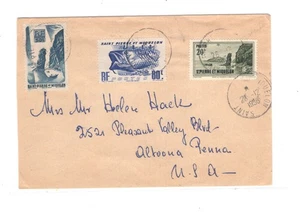 SAINT-PIERRE ET MIQUELON
SAINT-PIERRE ET MIQUELON
RF 80c
POSTES
20F
ST PIERRE ET MIQUELON
Mrs Mr Helen Hack
2521 Pleasant Valley Blvd-
Altoona Penna
U.S.A